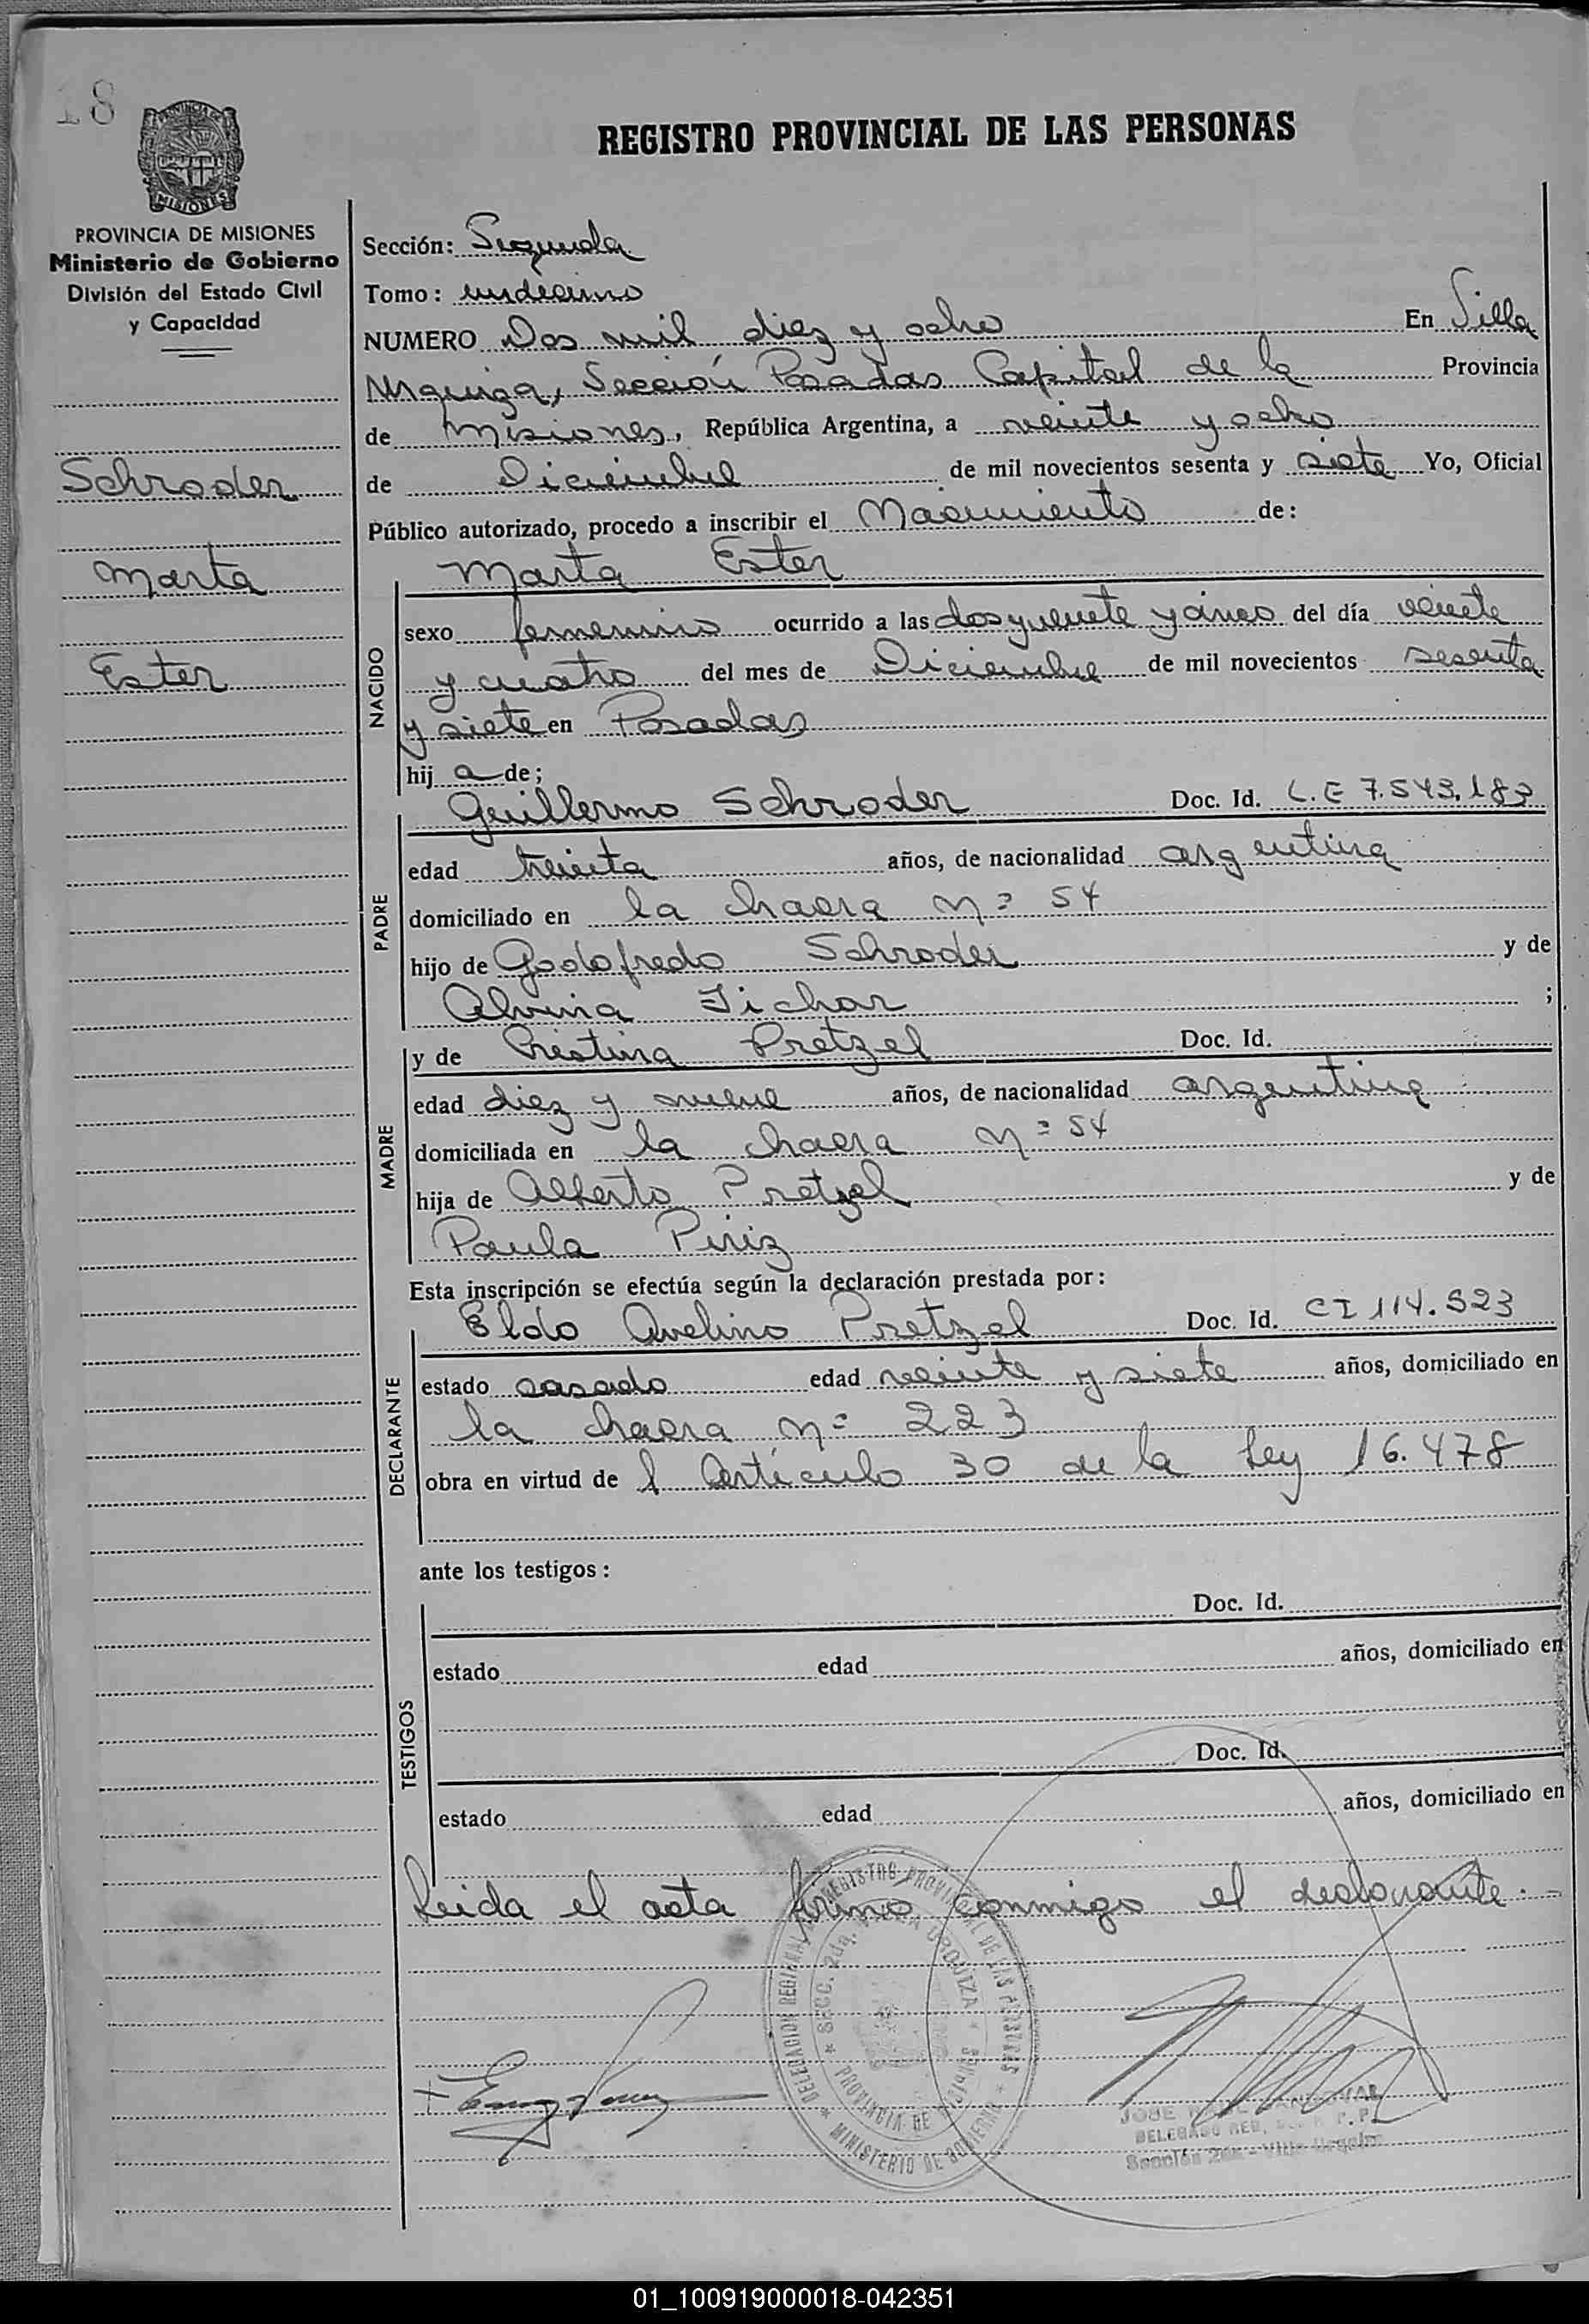 18
REGISTRO PROVINCIAL DE LAS PERSONAS
MISIONES
PROVINCIA DE MISIONES
Ministerio de Gobierno
División del Estado Civil
y Capacidad
Schroder
Marta
Ester
Sección: Segunda
Tomo: undecimo
NUMERO Dos mil diez y ocho En Villa
Urquiza, Sección Posadas Capital de la Provincia
de Misiones, República Argentina, a veinte y ocho
de Diciembre de mil novecientos sesenta y siete Yo, Oficial
Público autorizado, procedo a inscribir el Nacimiento de:
Marta Ester
NACIDO
sexo femenino ocurrido a las dos y veinte y cinco del día veinte
y cuatro del mes de Diciembre de mil novecientos sesenta
y siete en Posadas
hij a de;
PADRE
Guillermo Schroder Doc. Id. L.E 7.543.183
edad treinta años, de nacionalidad argentina
domiciliado en la chacra nº 54
hijo de Godofredo Schroder y de
Alvina Jichor ;
MADRE
y de Cristina Pretzel Doc. Id.
edad diez y nueve años, de nacionalidad argentina
domiciliada en la chacra nº 54
hija de Alberto Pretzel y de
Paula Piriz
Esta inscripción se efectúa según la declaración prestada por:
DECLARANTE
Eldo Avelino Pretzel Doc. Id. CI 114.523
estado casado edad veinte y siete años, domiciliado en
la chacra nº 223
obra en virtud de l Artículo 30 de la Ley 16.478
ante los testigos:
TESTIGOS
Doc. Id.
estado edad años, domiciliado en
Doc. Id.
estado edad años, domiciliado en
Leida el acta firmo conmigo el declarante.-
DELEGACION REGIONAL REGISTRO PROVINCIAL DE LAS PERSONAS
* SECC. 2da. VILLA URQUIZA *
PROVINCIA DE MISIONES
* MINISTERIO DE GOBIERNO *
JOSE
DELEGADO REG.
Sección 2da - Villa Urquiza
01_100919000018-042351